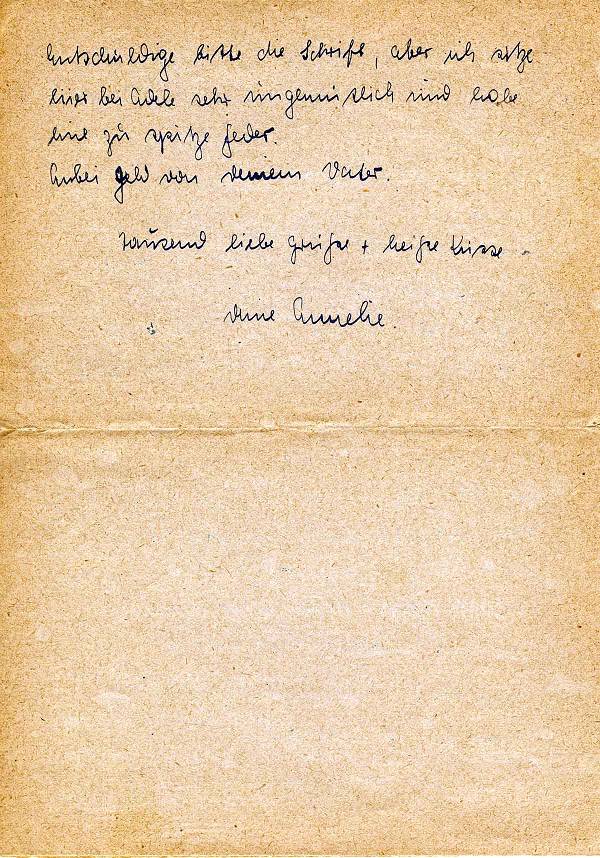 Entschuldige bitte die Schrift, aber ich sitze
hier bei Adele sehr ungemütlich und habe
eine zu spitze Feder.
Anbei Geld von deinem Vater.
Tausend liebe Grüße + heiße Küsse
deine Annelie.